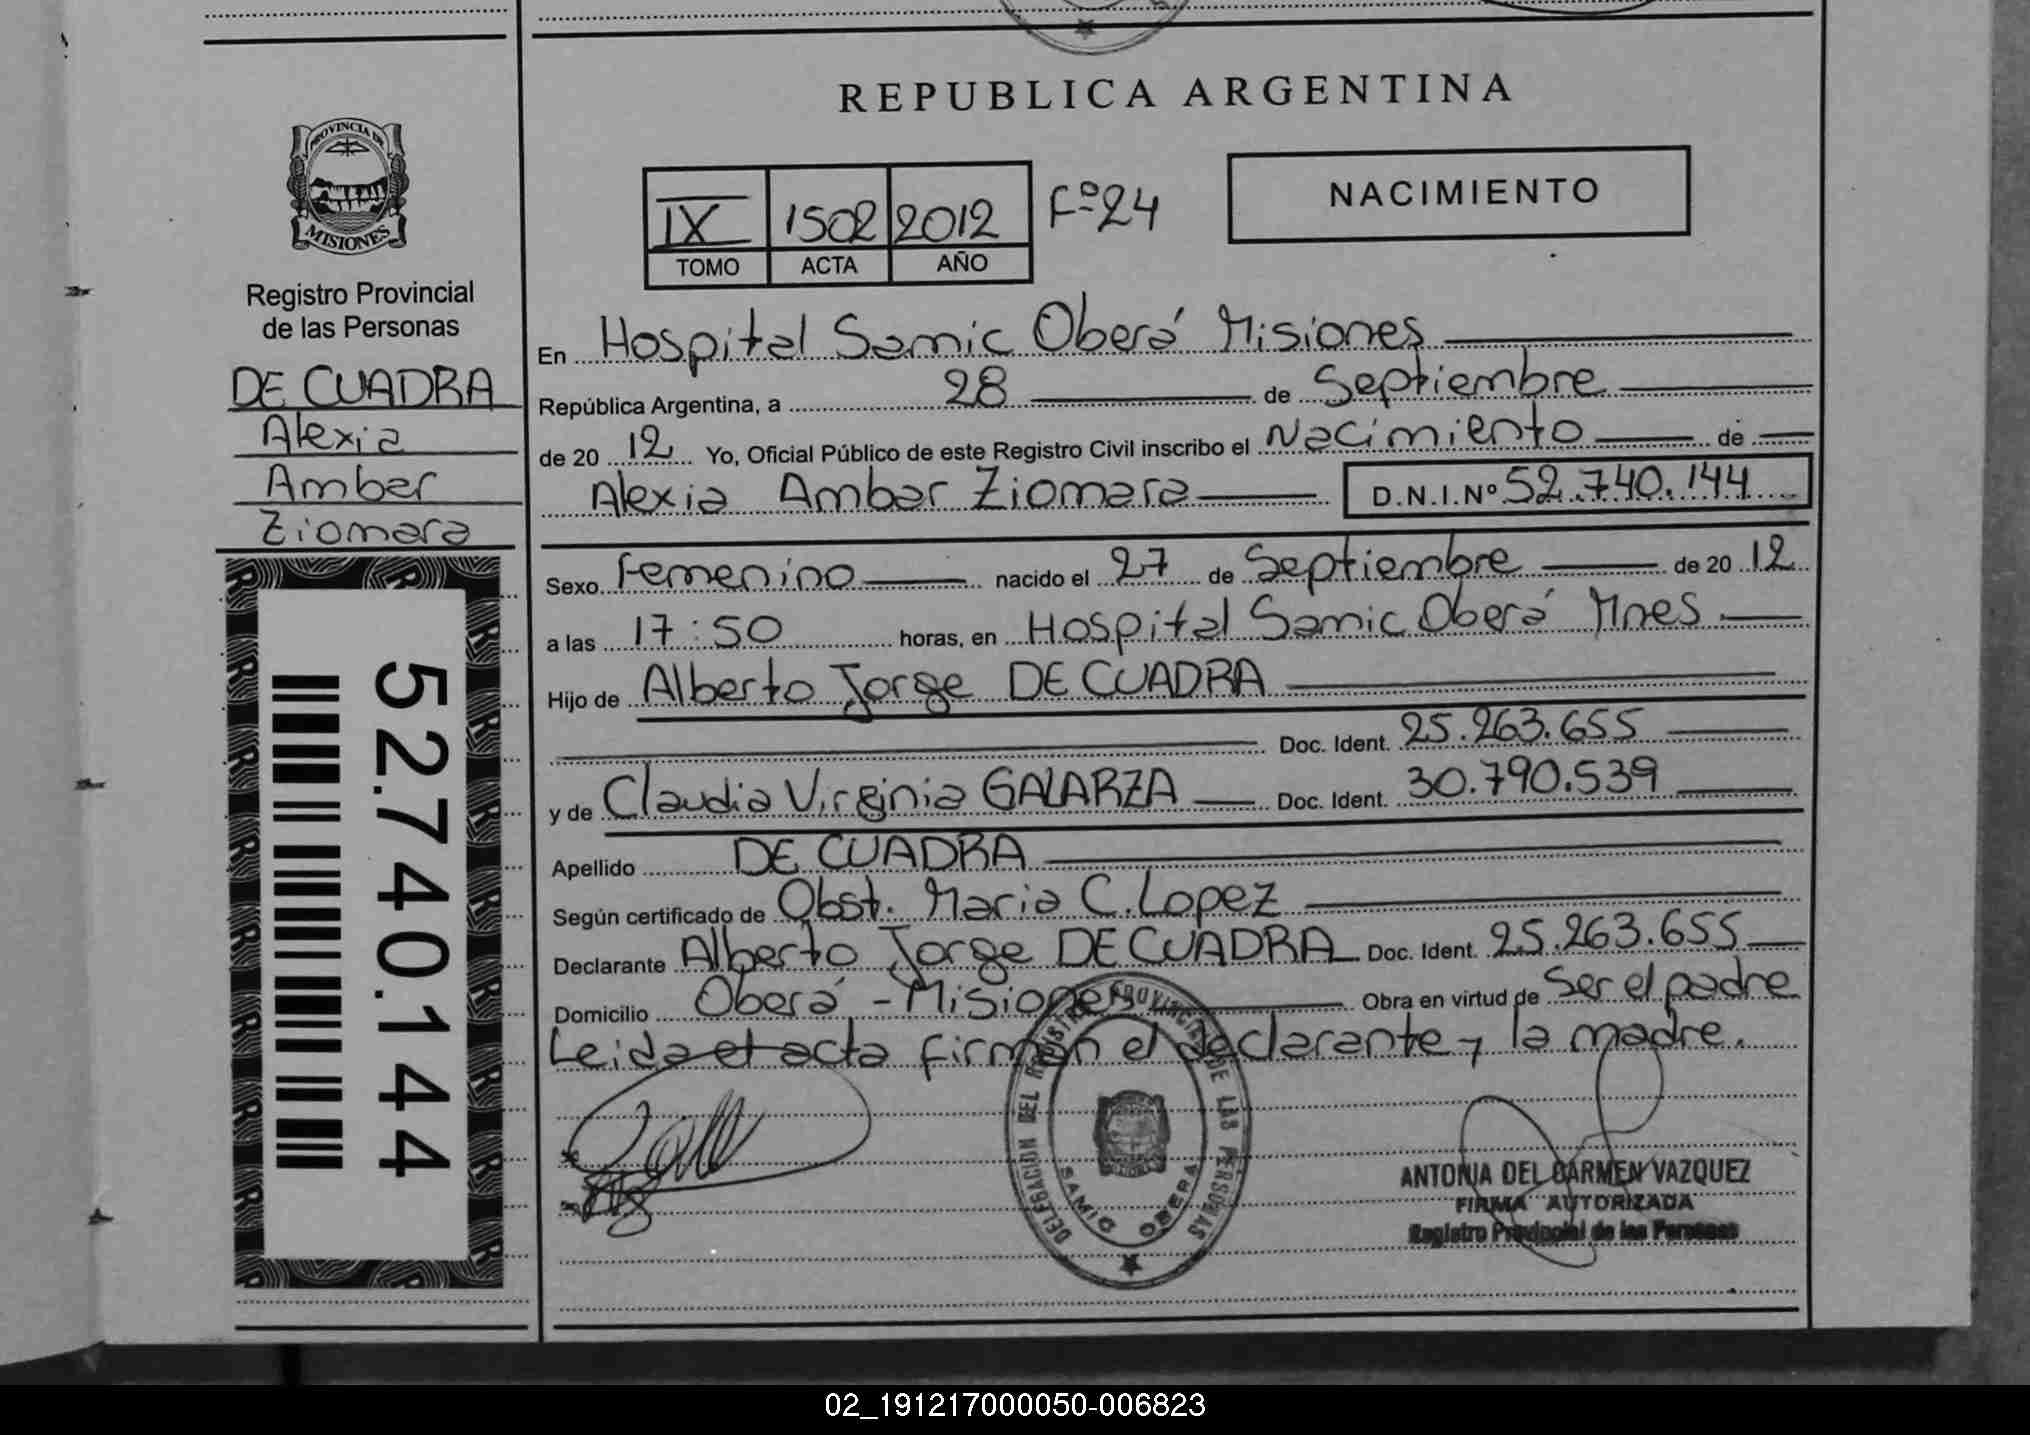 REPUBLICA ARGENTINA
PROVINCIA DE
MISIONES
Registro Provincial
de las Personas
DE CUADRA
Alexia
Ambar
Ziomara
52.740.144
IX 1502 2012 Fº 24
TOMO ACTA AÑO
NACIMIENTO
En Hospital Samic Oberá Misiones
República Argentina, a 28 de Septiembre
de 20 12 Yo, Oficial Público de este Registro Civil inscribo el Nacimiento de
Alexia Ambar Ziomara D.N.I.Nº 52.740.144
Sexo Femenino nacido el 27 de Septiembre de 20 12
a las 17:50 horas, en Hospital Samic Oberá Mnes
Hijo de Alberto Jorge DE CUADRA
Doc. Ident. 25.263.655
y de Claudia Virginia GALARZA Doc. Ident. 30.790.539
Apellido DE CUADRA
Según certificado de Obst. Maria C. Lopez
Declarante Alberto Jorge DE CUADRA Doc. Ident. 25.263.655
Domicilio Oberá - Misiones Obra en virtud de Ser el padre
Leida el acta firman el declarante y la madre.
DELEGACION DEL REGISTRO PROVINCIAL DE LAS PERSONAS
SAMIC OBERA
ANTONIA DEL CARMEN VAZQUEZ
FIRMA AUTORIZADA
Registro Provincial de las Personas
02_191217000050-006823